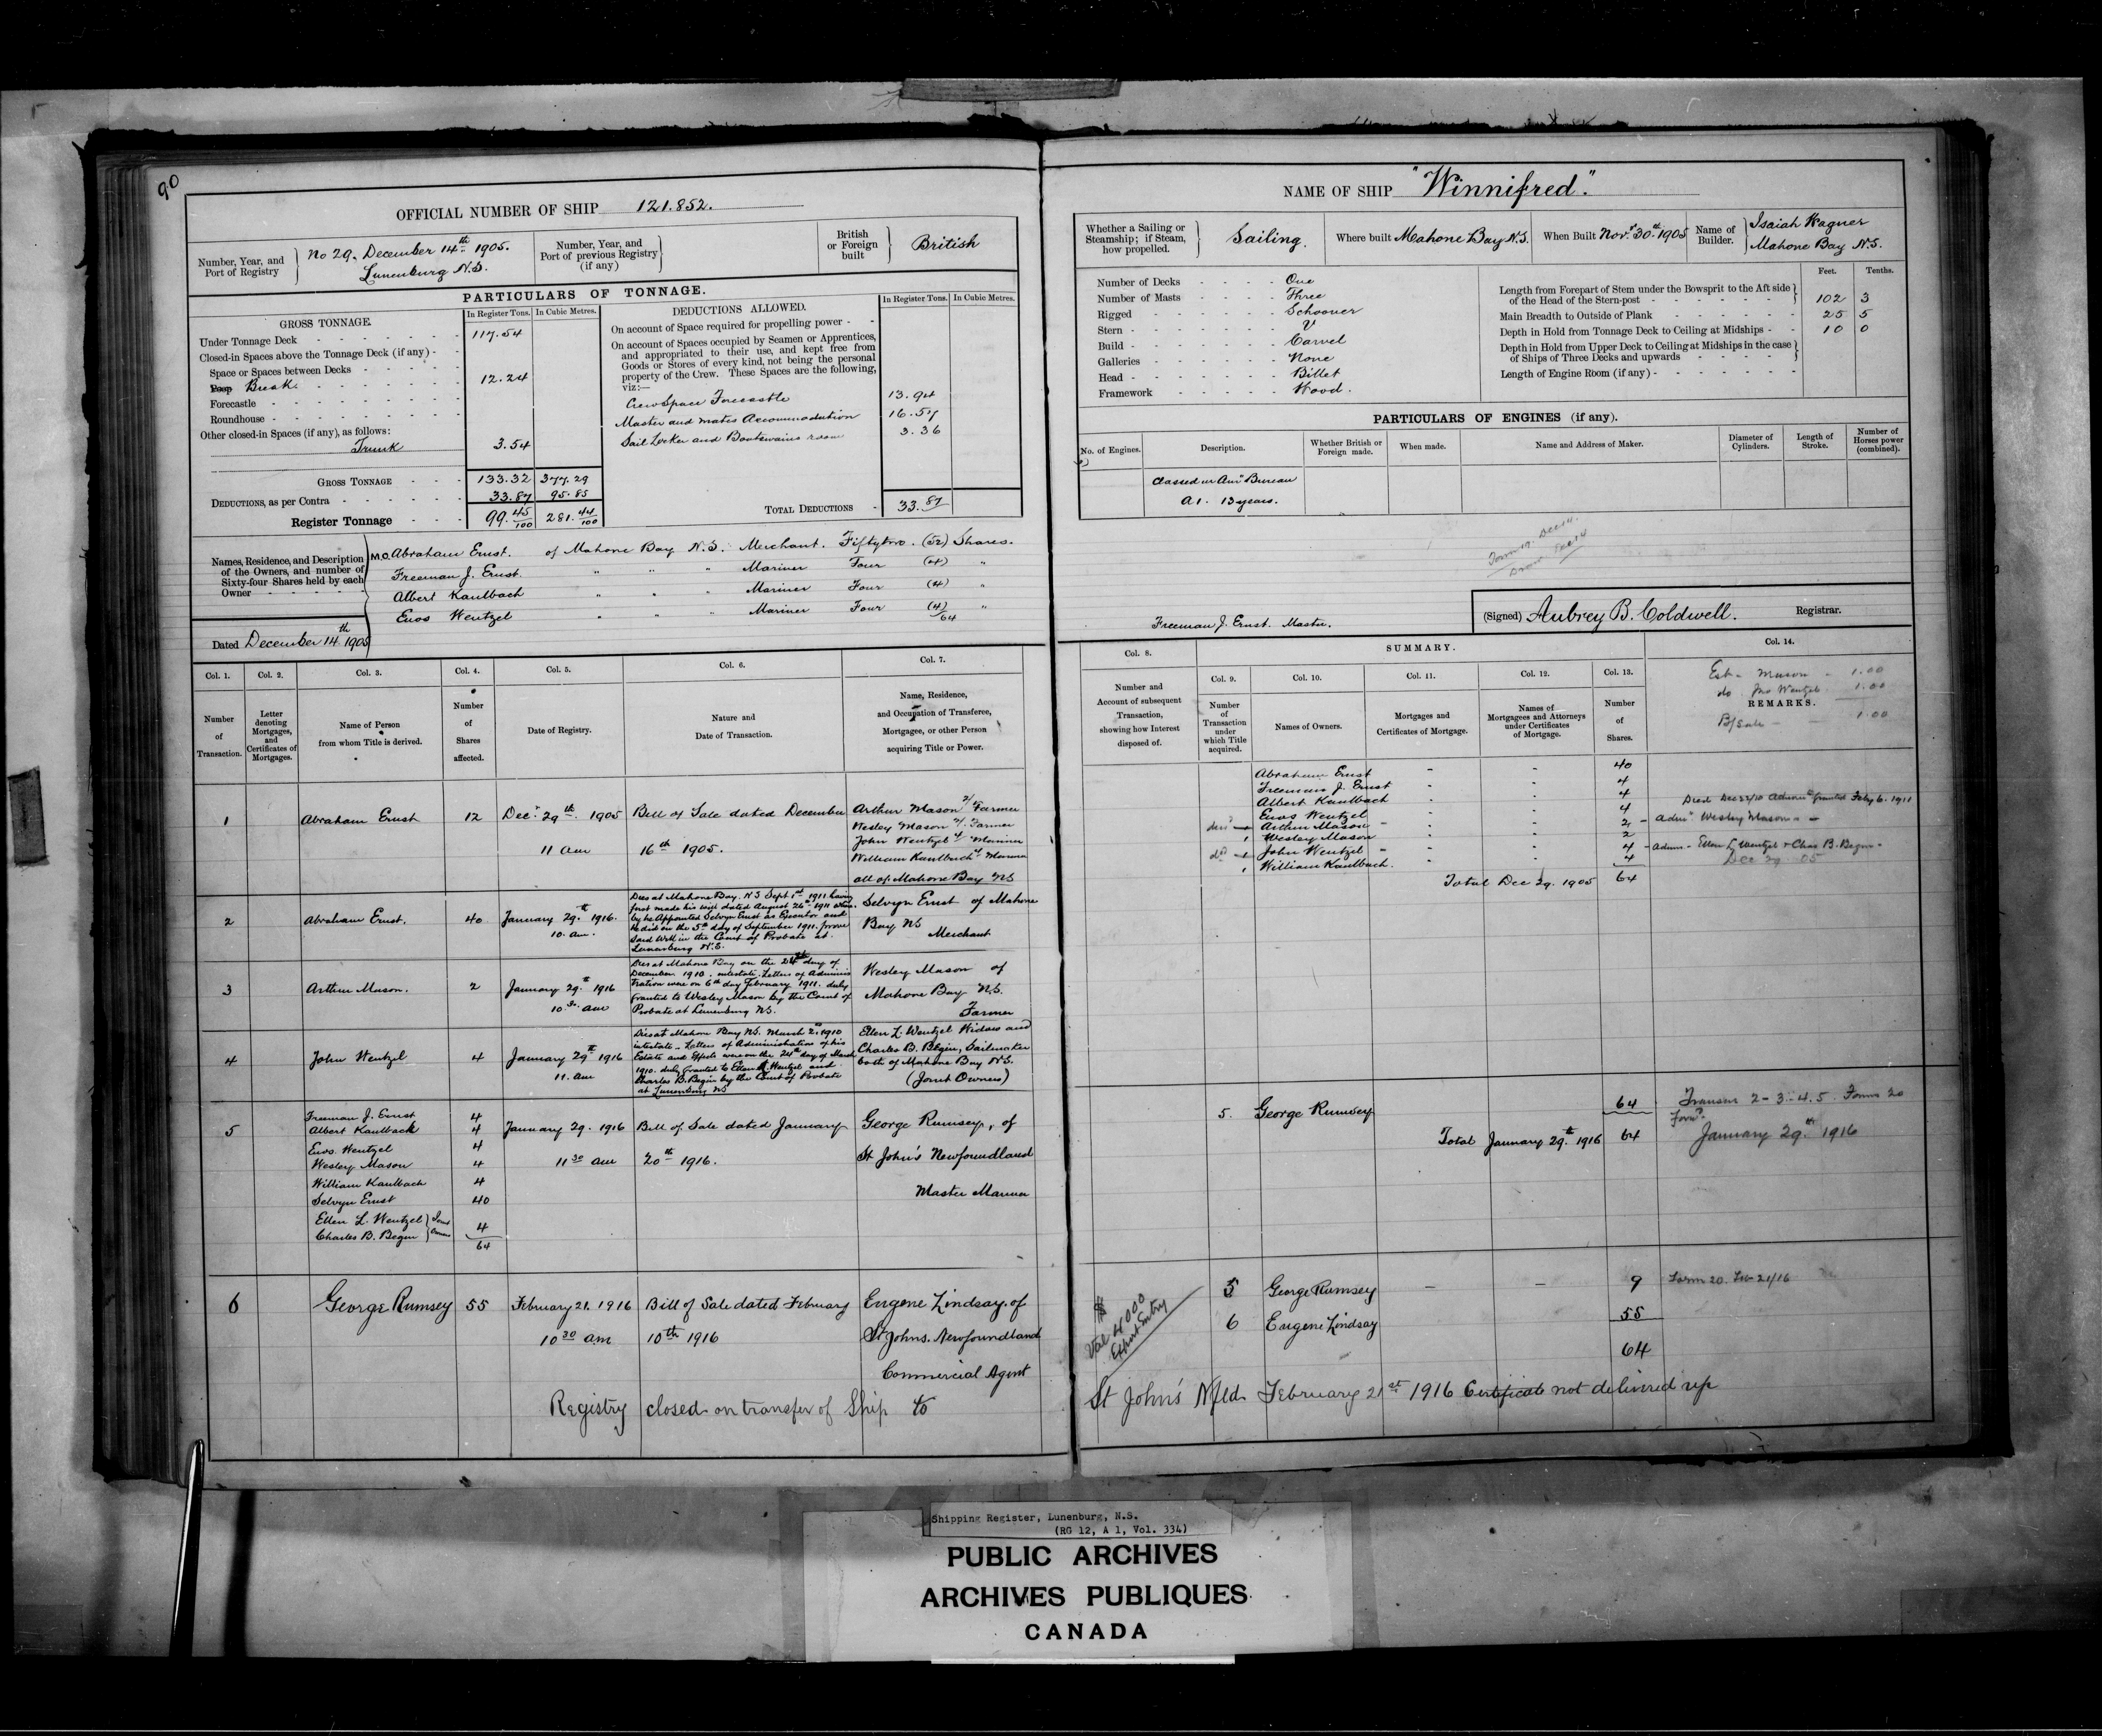 90
OFFICIAL NUMBER OF SHIP 121.852.
Number, Year, and Port of Registry
No 29. December 14th 1905.
Lunenburg N.S.
Number, Year, and Port of previous Registry (if any)
British or Foreign built
British
PARTICULARS OF TONNAGE.
GROSS TONNAGE.
In Register Tons. In Cubic Metres.
Under Tonnage Deck 117.54
Closed-in Spaces above the Tonnage Deck (if any)
Space or Spaces between Decks
Poop Break 12.24
Forecastle
Roundhouse
Other closed-in Spaces (if any), as follows:
Trunk 3.54
GROSS TONNAGE 133.32 377.29
DEDUCTIONS, as per Contra 33.87 95.85
Register Tonnage 99.45/100 281.44/100
DEDUCTIONS ALLOWED.
In Register Tons. In Cubic Metres.
On account of Space required for propelling power
On account of Spaces occupied by Seamen or Apprentices,
and appropriated to their use, and kept free from
Goods or Stores of every kind, not being the personal
property of the Crew. These Spaces are the following,
viz:—
Crew Space Forecastle 13.94
Master and mates Accommodation 16.57
Sail Locker and Boatswains room 3.36
TOTAL DEDUCTIONS 33.87
Names, Residence, and Description
of the Owners, and number of
Sixty-four Shares held by each
Owner
M.O. Abraham Ernst. of Mahone Bay N.S. Merchant. Fiftytwo. (52) Shares.
Freeman J. Ernst. " " " Mariner Four (4) "
Albert Kaulbach " " " Mariner Four (4) "
Enos Wentzel " " " Mariner Four (4) "
64
Dated December 14th 1905
Col. 1. Col. 2. Col. 3. Col. 4. Col. 5. Col. 6. Col. 7.
Number of Transaction.
Letter denoting Mortgages, and Certificates of Mortgages.
Name of Person from whom Title is derived.
Number of Shares affected.
Date of Registry.
Nature and Date of Transaction.
Name, Residence, and Occupation of Transferee, Mortgagee, or other Person acquiring Title or Power.
1 Abraham Ernst 12 Decr 29th 1905 Bill of Sale dated December Arthur Mason 2/ Farmer
Wesley Mason 2/ Farmer
11 am 16th 1905. John Wentzel 4/ Mariner
William Kaulbach 4/ Mariner
all of Mahone Bay NS
2 Abraham Ernst. 40 January 29th 1916. 10. am.
Dies at Mahone Bay. N S Sept 1st 1911 having
first made his will dated August 26th 1911 where
by he Appointed Selvyn Ernst as Executor and
he did on the 5th day of September 1911. prove
said Will in the Court of Probate at
Lunenburg N.S.
Selvyn Ernst of Mahone
Bay NS
Merchant
3 Arthur Mason. 2 January 29th 1916 10 30 am
Dies at Mahone Bay on the 24th day of
December. 1910. intestate. Letters of Adminis
tration were on 6th day February 1911. duly
granted to Wesley Mason by the Court of
Probate at Lunenburg NS.
Wesley Mason of
Mahone Bay N.S.
Farmer
4 John Wentzel 4 January 29th 1916 11. am
Dies at Mahone Bay NS. March 2nd 1910
intestate. Letters of Administration of his
Estate and Effects were on the 24th day of March
1910. duly granted to Ellen L Wentzel and
Charles B. Begin by the Court of Probate
at Lunenburg NS
Ellen L. Wentzel Widow and
Charles B. Begin, Sailmaker
both of Mahone Bay N.S.
(Joint Owners)
5 Freeman J. Ernst 4
Albert Kaulback 4 January 29. 1916 Bill of Sale dated January George Rumsey, of
Enos. Wentzel 4
Wesley Mason 4 11 30 am 20th 1916. St John's Newfoundland
William Kaulbach 4
Selvyn Ernst 40 Master Mariner
Ellen L. Wentzel } Joint
Charles B. Begin } Owners 4
64
6 George Rumsey 55 February 21. 1916 Bill of Sale dated February Eugene Lindsay. of
10 30 am 10th 1916 St Johns. Newfoundland
Commercial Agent
Registry closed on transfer of Ship to
NAME OF SHIP "Winnifred".
Whether a Sailing or Steamship; if Steam, how propelled.
Sailing.
Where built Mahone Bay N.S.
When Built Novr 30th 1905
Name of Builder.
Isaiah Wagner
Mahone Bay N.S.
Number of Decks One
Number of Masts Three
Rigged Schooner
Stern V
Build Carvel
Galleries None
Head Billet
Framework Wood.
Feet. Tenths.
Length from Forepart of Stem under the Bowsprit to the Aft side
of the Head of the Stern-post 102 3
Main Breadth to Outside of Plank 25 5
Depth in Hold from Tonnage Deck to Ceiling at Midships 10 0
Depth in Hold from Upper Deck to Ceiling at Midships in the case
of Ships of Three Decks and upwards
Length of Engine Room (if any)
PARTICULARS OF ENGINES (if any).
No. of Engines.
Description.
Whether British or Foreign made.
When made.
Name and Address of Maker.
Diameter of Cylinders.
Length of Stroke.
Number of Horses power (combined).
Classed in Amn Bureau
A1. 13 years.
Form 19. Dec 14.
Dec 14
Freeman J. Ernst. Master.
(Signed) Aubrey B. Coldwell. Registrar.
Col. 8.
SUMMARY.
Col. 14.
Col. 9. Col. 10. Col. 11. Col. 12. Col. 13.
Number and Account of subsequent Transaction, showing how Interest disposed of.
Number of Transaction under which Title acquired.
Names of Owners.
Mortgages and Certificates of Mortgage.
Names of Mortgagees and Attorneys under Certificates of Mortgage.
Number of Shares.
Est - Mason - 1.00
do. Jno Wentzel 1.00
REMARKS.
B/Sale - 1.00
Abraham Ernst - - 40
Freeman J. Ernst - - 4
Albert Kaulbach - - 4
Enos Wentzel - - 4
Arthur Mason - - 2
1 Wesley Mason - - 2
John Wentzel - - 4
1 William Kaulbach. - - 4
Total Dec 29. 1905 64
granted Feby 6. 1911
Wesley Mason
Ellen L Wentzel & Chas B. Begin
Dec 29 05
5. George Rumsey 64
Total January 29th 1916 64
Transns 2-3-4.5. Forms 20
Forwd.
January 29th 1916
$
Val 4000
Export Entry
5 George Rumsey - - 9 Form 20. Feb 21/16
6 Eugene Lindsay 55
64
St John's Nfld February 21st 1916 Certificate not delivered up
Shipping Register, Lunenburg, N.S.
(RG 12, A 1, Vol. 334)
PUBLIC ARCHIVES
ARCHIVES PUBLIQUES
CANADA